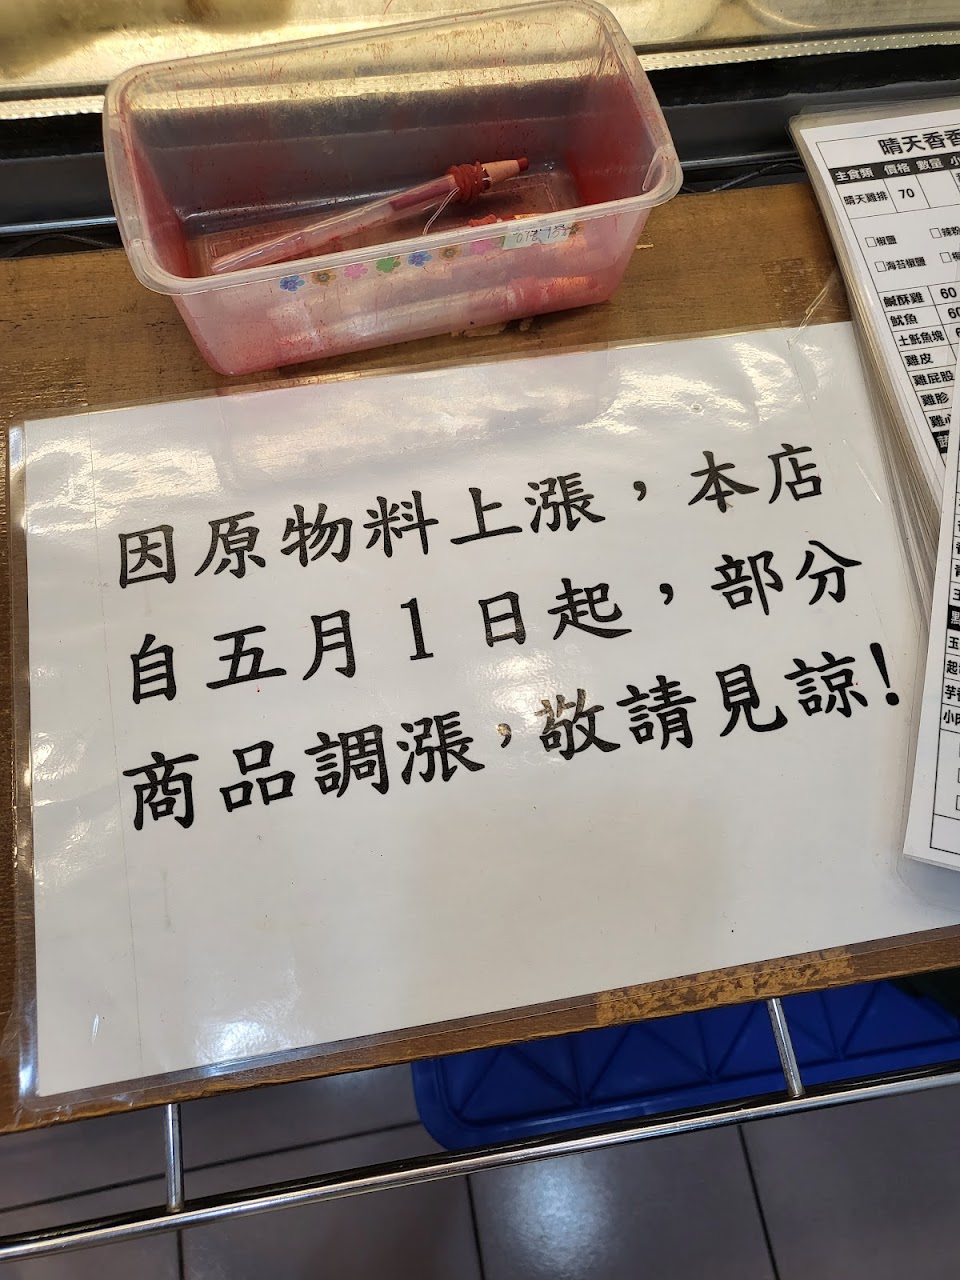 因原物料上漲，本店
自五月1日起，部分
商品調漲，敬請見諒！
晴天香香
主食類 價格 數量 小
晴天雞排 70
□椒鹽 □辣粉
□海苔椒鹽
鹹酥雞 60
魷魚 60
土魠魚塊 6
雞皮
雞屁股
雞胗
雞心